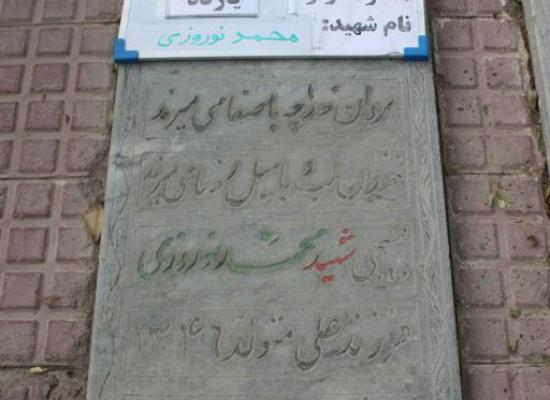 یازده
نام شهید:
محمد نوروزی
مردان خدا چه با صفا می میرند
خندان لب و با میل رضا می میرند
بسیجی شهید محمد نوروزی
فرزند علی متولد ۱۳۴۶